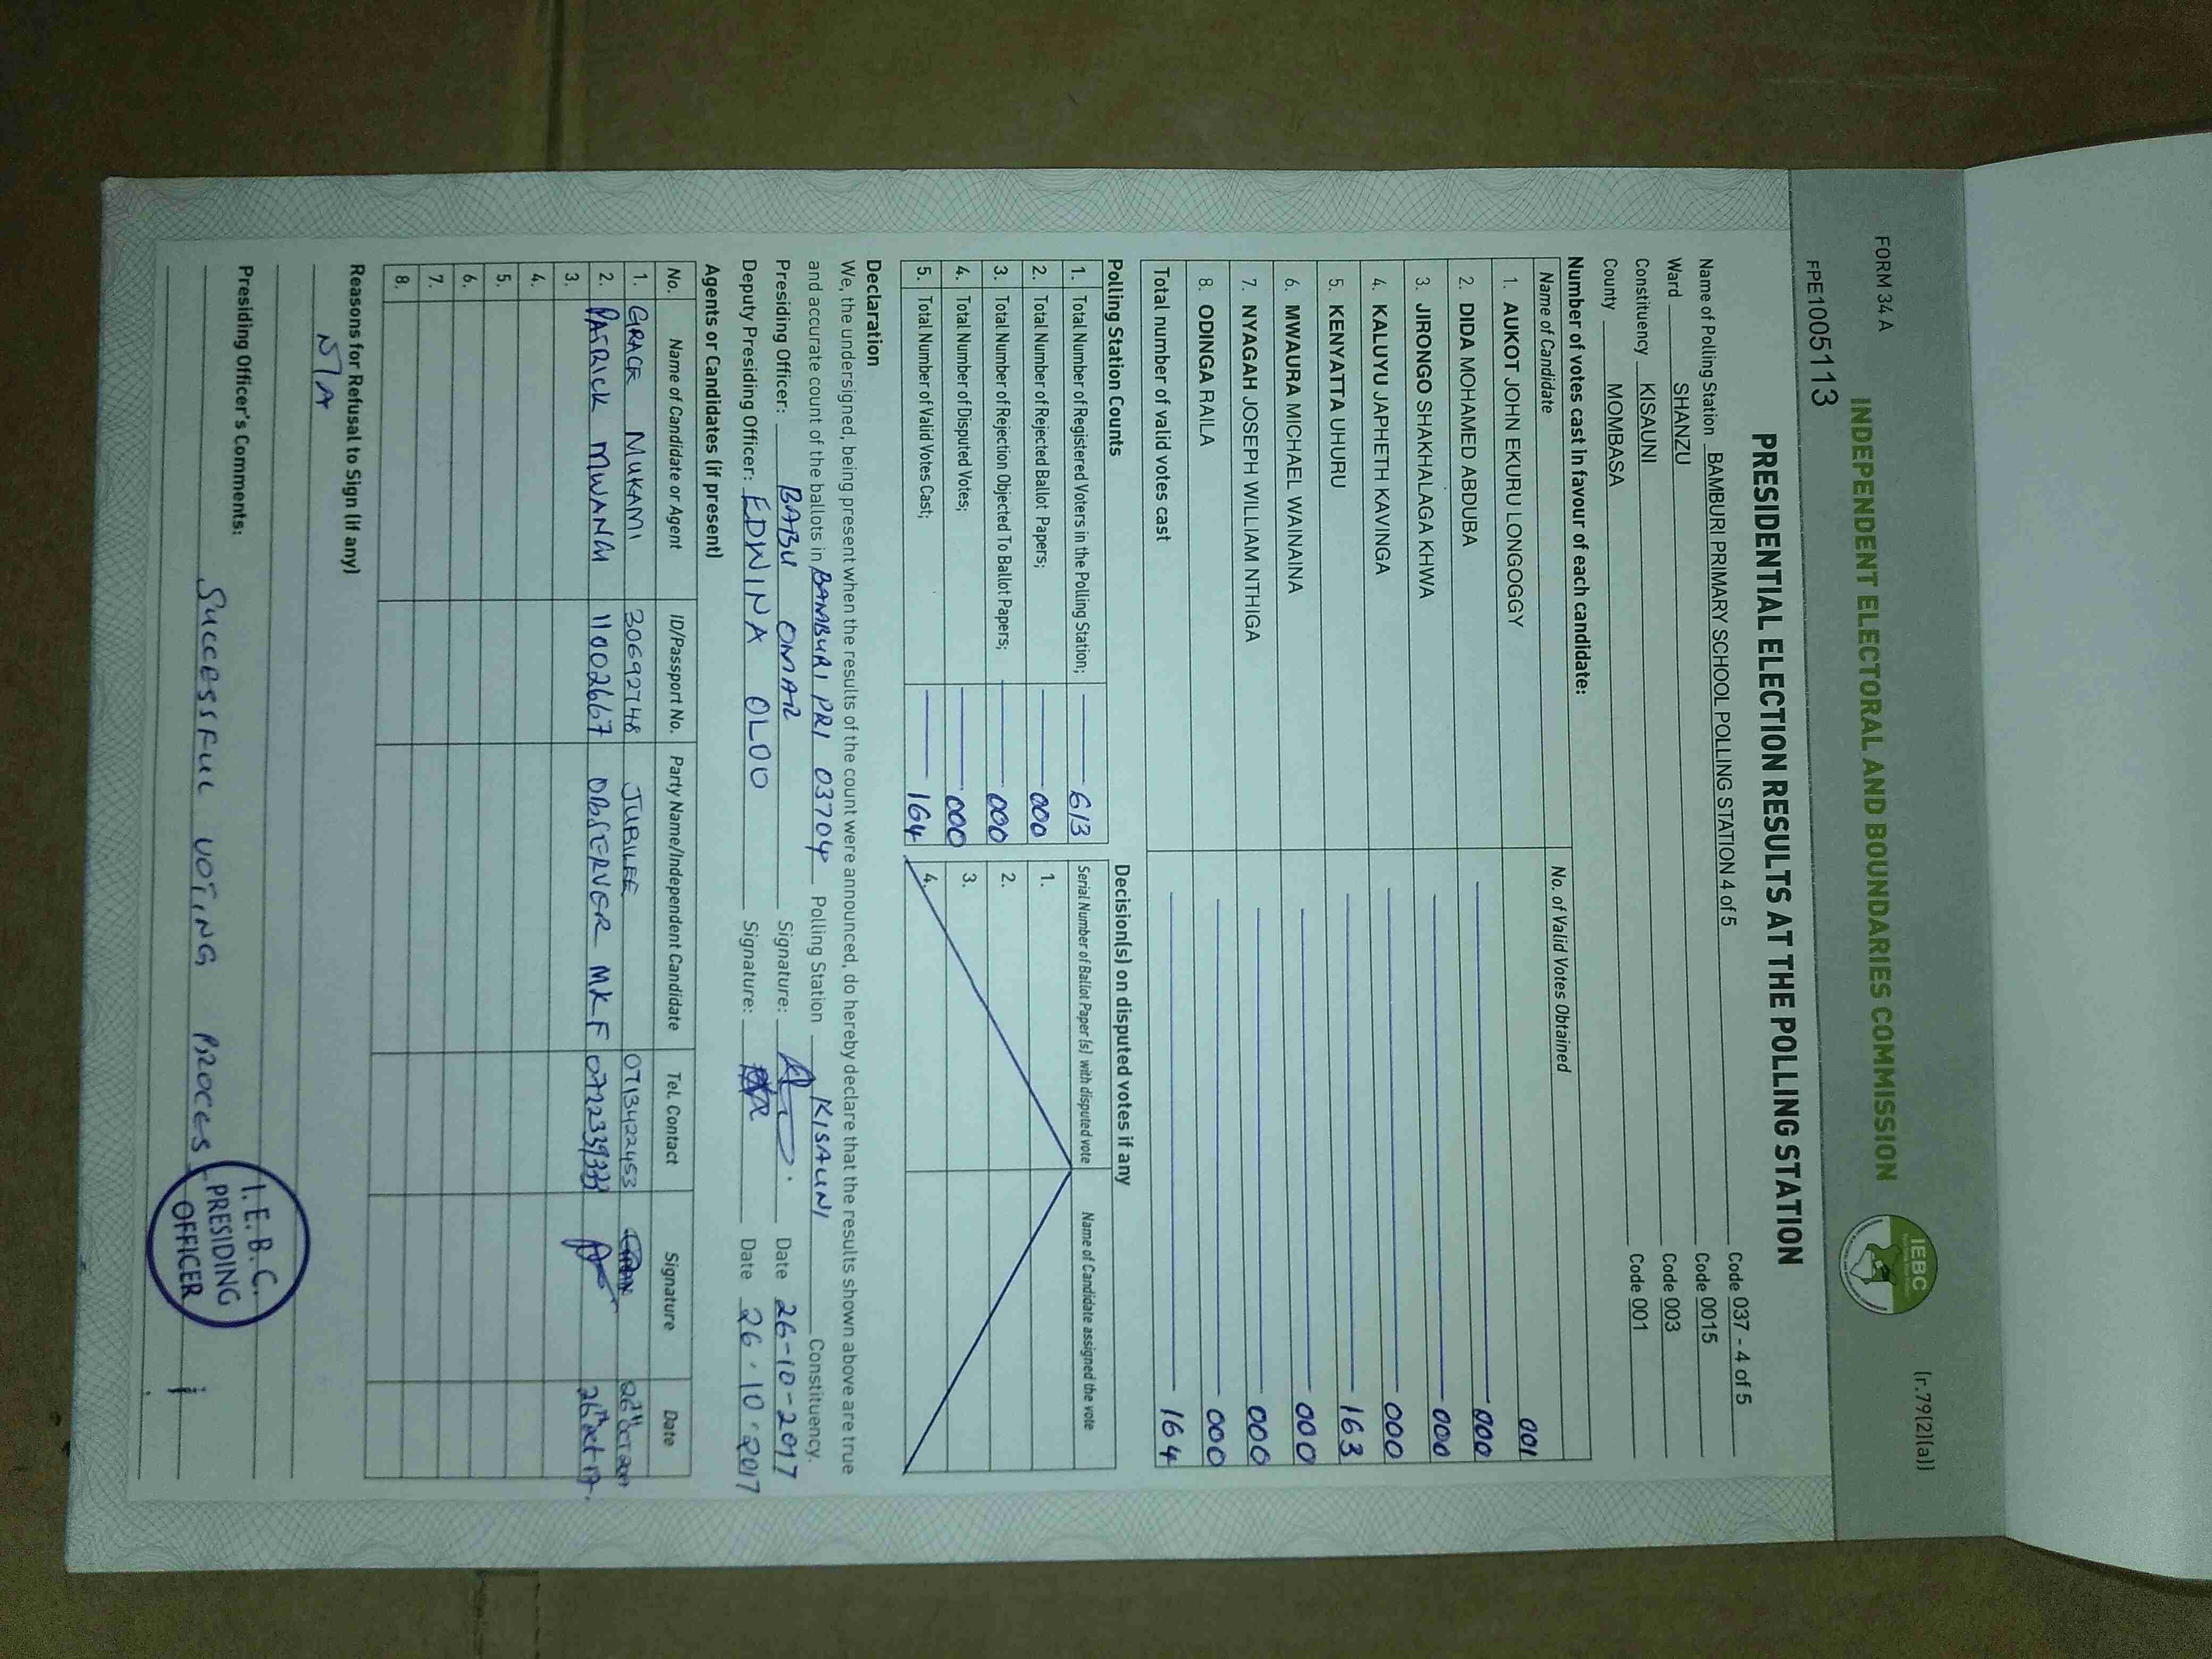 FORM 34 A
(r.79(2)(a))
INDEPENDENT ELECTORAL AND BOUNDARIES COMMISSION
IEBC
FPE1005113
PRESIDENTIAL ELECTION RESULTS AT THE POLLING STATION
Name of Polling Station BAMBURI PRIMARY SCHOOL POLLING STATION 4 of 5 Code 037 - 4 of 5
Ward SHANZU Code 0015
Constituency KISAUNI Code 003
County MOMBASA Code 001
Number of votes cast in favour of each candidate:
Name of Candidate No. of Valid Votes Obtained
1. AUKOT JOHN EKURU LONGOGGY 001
2. DIDA MOHAMED ABDUBA 000
3. JIRONGO SHAKHALAGA KHWA 000
4. KALUYU JAPHETH KAVINGA 000
5. KENYATTA UHURU 163
6. MWAURA MICHAEL WAINAINA 000
7. NYAGAH JOSEPH WILLIAM NTHIGA 000
8. ODINGA RAILA 000
Total number of valid votes cast 164
Polling Station Counts
1. Total Number of Registered Voters in the Polling Station; 613
2. Total Number of Rejected Ballot Papers; 000
3. Total Number of Rejection Objected To Ballot Papers; 000
4. Total Number of Disputed Votes; 000
5. Total Number of Valid Votes Cast; 164
Decision(s) on disputed votes if any
Serial Number of Ballot Paper (s) with disputed vote Name of Candidate assigned the vote
1.
2.
3.
4.
Declaration
We, the undersigned, being present when the results of the count were announced, do hereby declare that the results shown above are true
and accurate count of the ballots in BAMBURI PRI 03704 Polling Station KISAUNI Constituency.
Presiding Officer: BABU OMAR Signature: Date 26-10-2017
Deputy Presiding Officer: EDWINA OLOO Signature: Date 26.10.2017
Agents or Candidates (if present)
No. Name of Candidate or Agent ID/Passport No. Party Name/Independent Candidate Tel. Contact Signature Date
1. GRACE MUKAMI 30692748 JUBILEE 0713422453 26th OCT 2017
2. PATRICK MWANGI 11002667 OBSERVER MKF 0722339333 26th Oct 17.
3.
4.
5.
6.
7.
8.
Reasons for Refusal to Sign (if any)
N/A
Presiding Officer's Comments:
Successful voting process
I.E.B.C.
PRESIDING
OFFICER